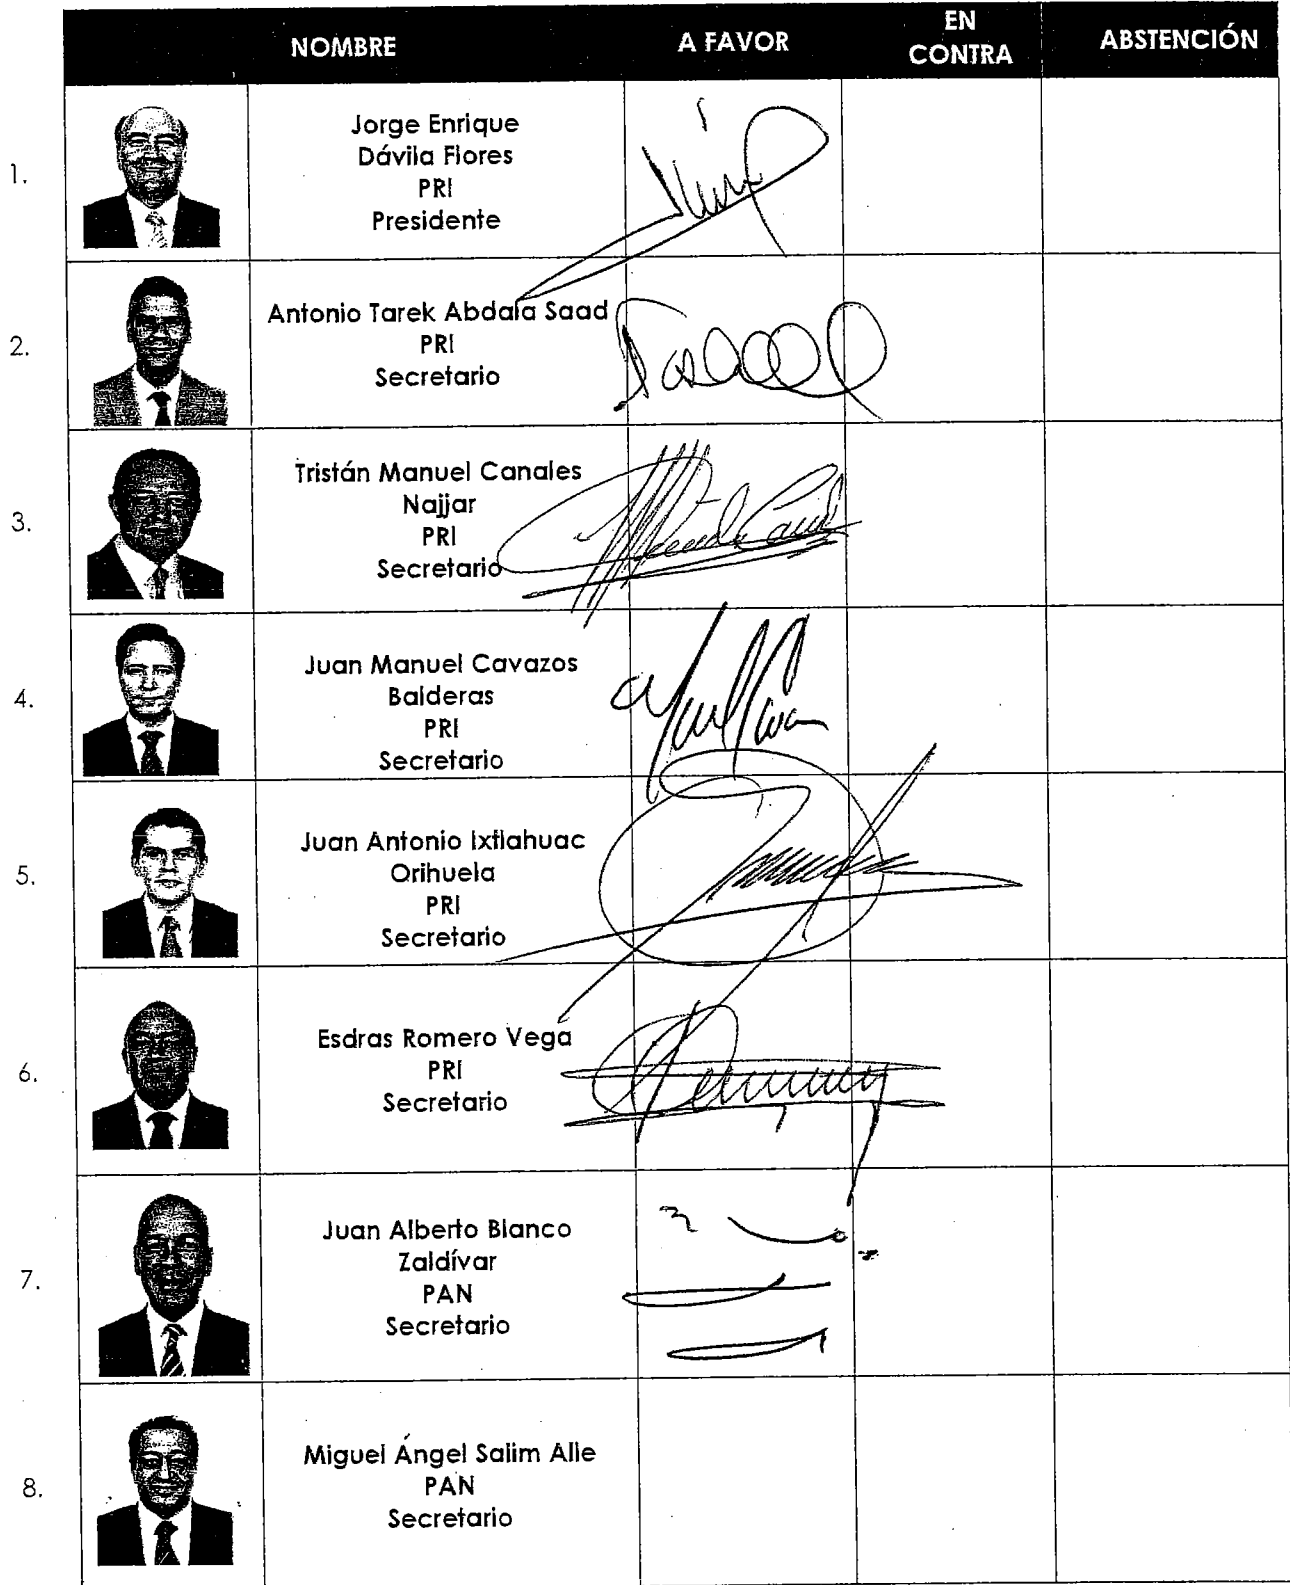 NOMBRE A FAVOR EN CONTRA ABSTENCIÓN
1.
Jorge Enrique
Dávila Flores
PRI
Presidente
2.
Antonio Tarek Abdala Saad
PRI
Secretario
3.
Tristán Manuel Canales
Najjar
PRI
Secretario
4.
Juan Manuel Cavazos
Balderas
PRI
Secretario
5.
Juan Antonio Ixtlahuac
Orihuela
PRI
Secretario
6.
Esdras Romero Vega
PRI
Secretario
7.
Juan Alberto Blanco
Zaldívar
PAN
Secretario
8.
Miguel Ángel Salim Alle
PAN
Secretario